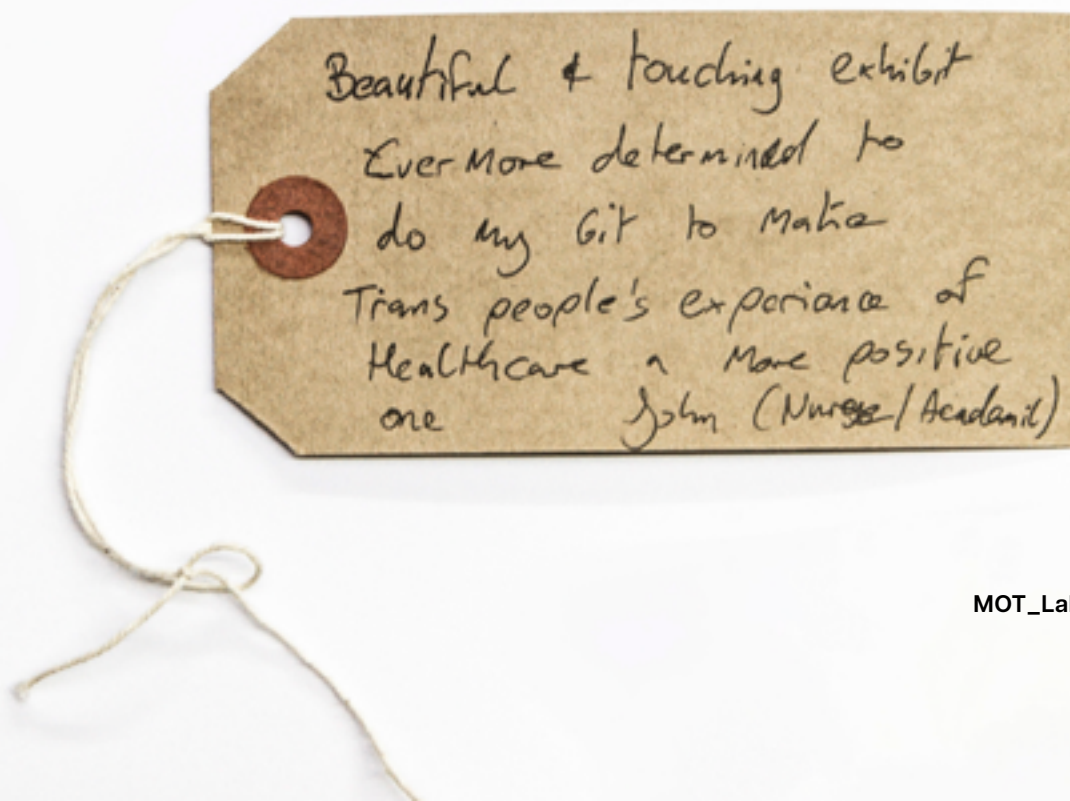 Beautiful & touching exhibit
Ever More determined to
do my bit to make
Trans people's experience of
Healthcare a More positive
one John (Nurse/Academic)
MOT_La